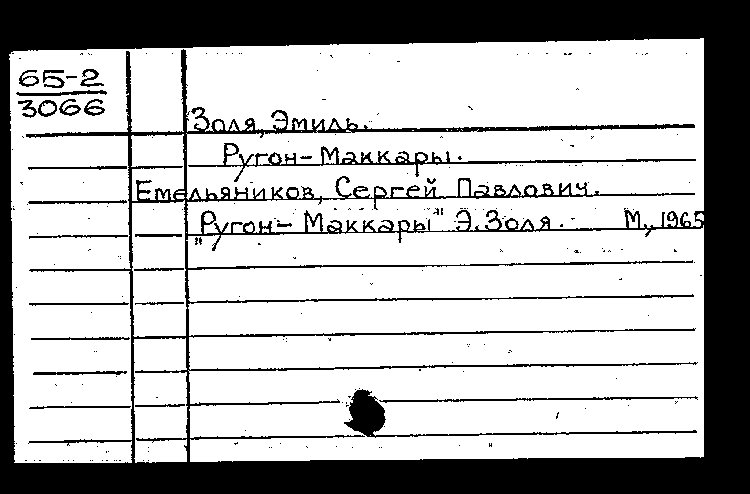 65-2
3066
Золя, Эмиль.
Ругон-Маккары.
Емельяников, Сергей Павлович.
„Ругон-Маккары" Э.Золя. М., 1965